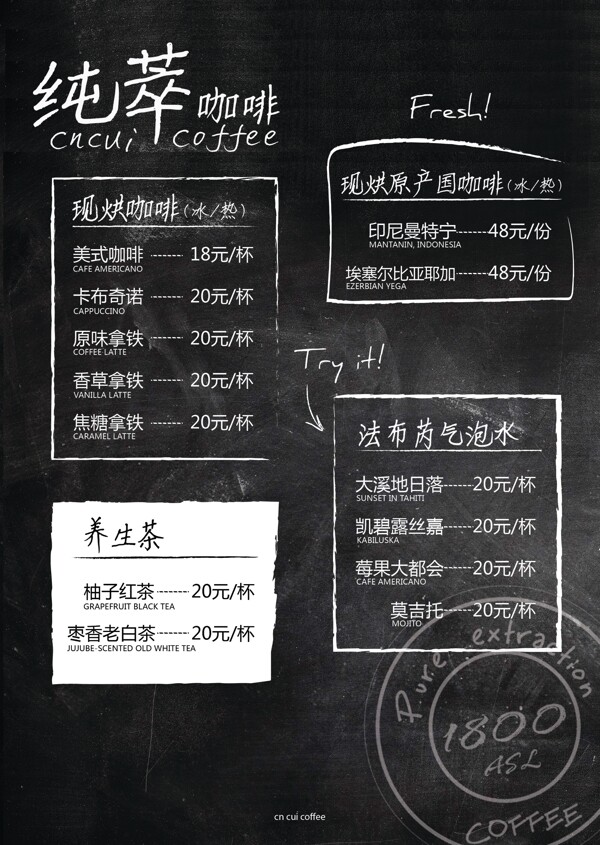 纯萃咖啡
cncui coffee
现烘咖啡(冰/热)
美式咖啡 ------- 18元/杯
CAFE AMERICANO
卡布奇诺 ------- 20元/杯
CAPPUCCINO
原味拿铁 ------- 20元/杯
COFFEE LATTE
香草拿铁 ------- 20元/杯
VANILLA LATTE
焦糖拿铁 ------- 20元/杯
CARAMEL LATTE
养生茶
柚子红茶 ------- 20元/杯
GRAPEFRUIT BLACK TEA
枣香老白茶 ------- 20元/杯
JUJUBE-SCENTED OLD WHITE TEA
Fresh!
现烘原产国咖啡(冰/热)
印尼曼特宁------48元/份
MANTANIN, INDONESIA
埃塞尔比亚耶加------48元/份
EZERBIAN YEGA
Try it!
法布芮气泡水
大溪地日落------20元/杯
SUNSET IN TAHITI
凯碧露丝嘉------20元/杯
KABILUSKA
莓果大都会------20元/杯
CAFE AMERICANO
莫吉托------20元/杯
MOJITO
Pure extraction
1800
ASL
COFFEE
cn cui coffee